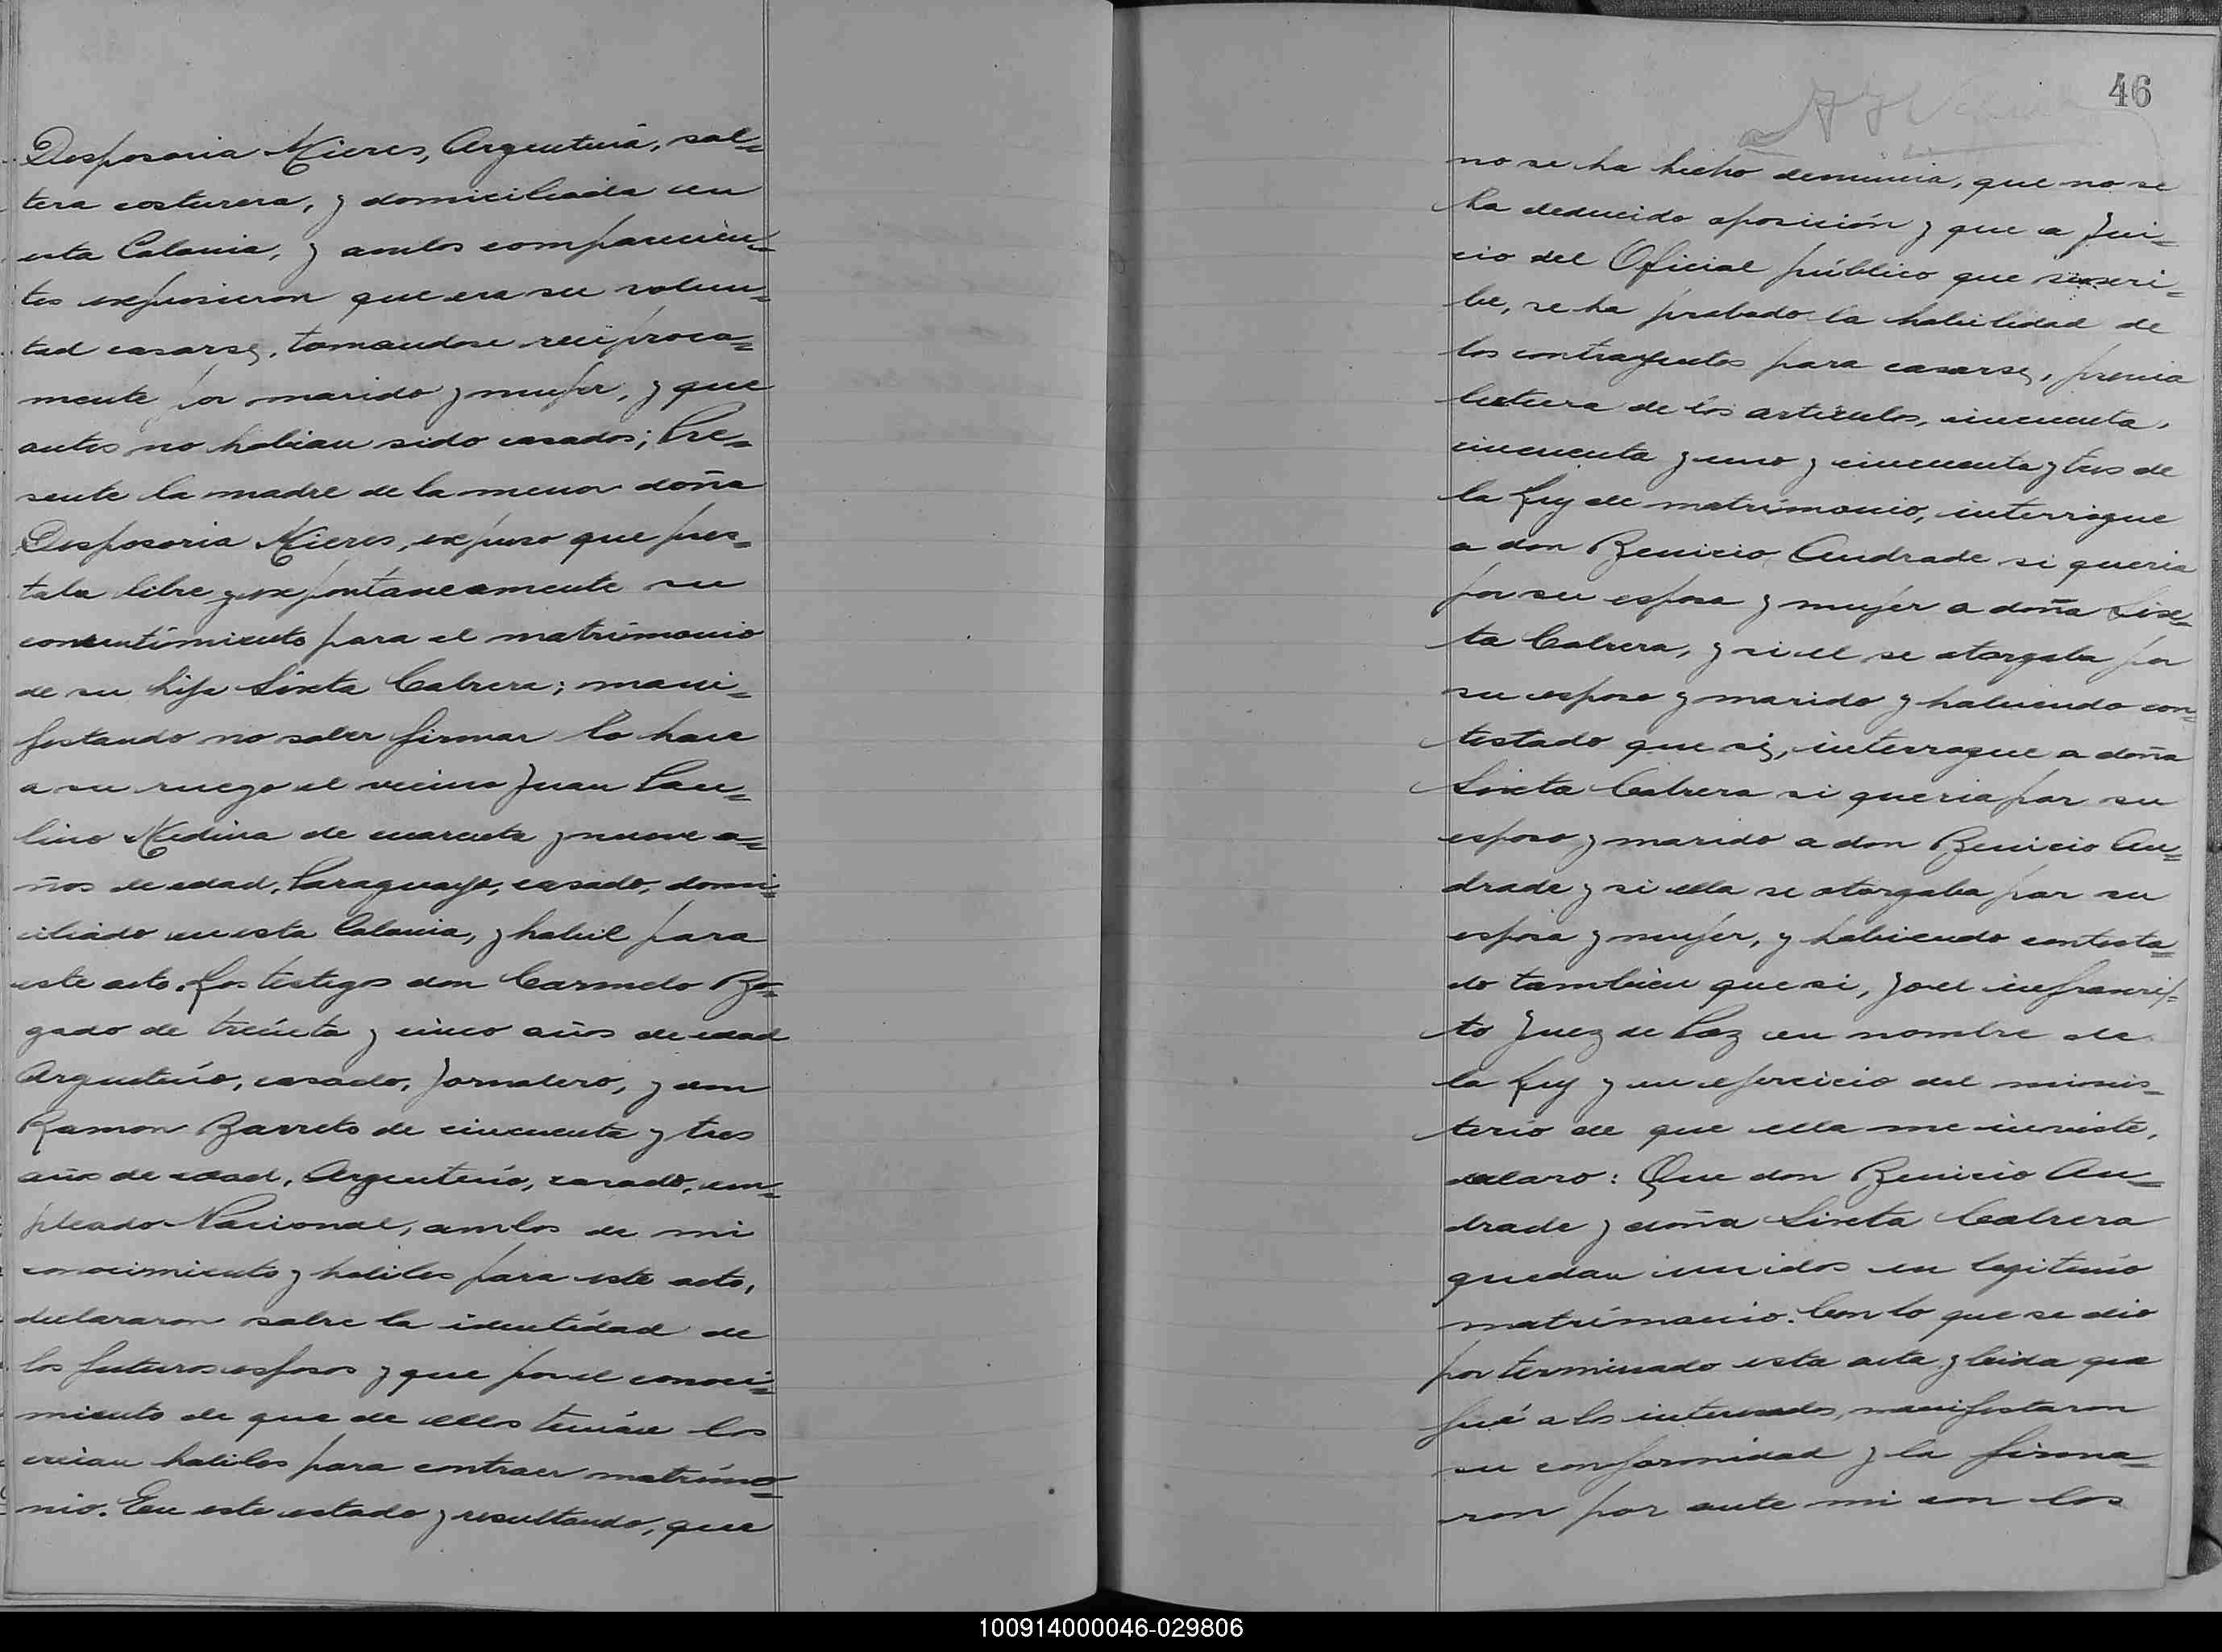 Desposoria Mieres, Argentina, sol=
tera costurera, y domiciliada en
esta Colonia, y ambos comparecien=
tes expusieron que era su volun=
tad casarse, tomandose reciproca=
mente por marido y mujer, y que
antes no habian sido casados; Pre=
sente la madre de la menor doña
Desposoria Mieres, expuso que pres=
taba libre y expontaneamente su
consentimiento para el matrimonio
de su hija Sixta Cabrera; mani=
festando no saber firmar lo hace
a su ruego el vecino Juan Pau=
lino Medina de cuarenta y nueve a=
ños de edad, Paraguayo, casado, domi=
ciliado en esta Colonia, y habil para
este acto. Los testigos don Carmelo Bo=
gado de treinta y cinco años de edad
Argentino, casado, Jornalero, y don
Ramon Barreto de cincuenta y tres
años de edad, Argentino, casado, em=
pleado Nacional, ambos de mi
conocimiento y habiles para este acto,
declararon sobre la identidad de
los futuros esposos y que por el conoci=
miento de que de ellos tenian los
creian habiles para contraer matrimo=
nio. En este estado y resultando, que
46
no se ha hecho denuncia, que no se
ha deducido oposición y que a Jui=
cio del Oficial público que suscri=
be, se ha probado la habilidad de
los contrayentes para casarse, previa
lectura de los artículos, cincuenta,
cincuenta y uno y cincuenta y tres de
la Ley de matrimonio, interrogue
a don Benicio Andrade si queria
por su esposa y mujer a doña Six=
ta Cabrera, y si el se otorgaba por
su esposo y marido y habiendo con=
testado que si, interrogue a doña
Sixta Cabrera si queria por su
esposo y marido a don Benicio An=
drade y si ella se otorgaba por su
esposa y mujer, y habiendo contesta=
do tambien que si, yo el infrascrip=
to Juez de Paz en nombre de
la Ley y en ejercicio del minis=
terio de que ella me inviste,
declaro: Que don Benicio An=
drade y doña Sixta Cabrera
quedan unidos en legitimo
matrimonio. Con lo que se dio
por terminado esta acta y leida que
fué a los interesados, manifestaron
su conformidad y la firma=
ron por ante mi con los
100914000046-029806